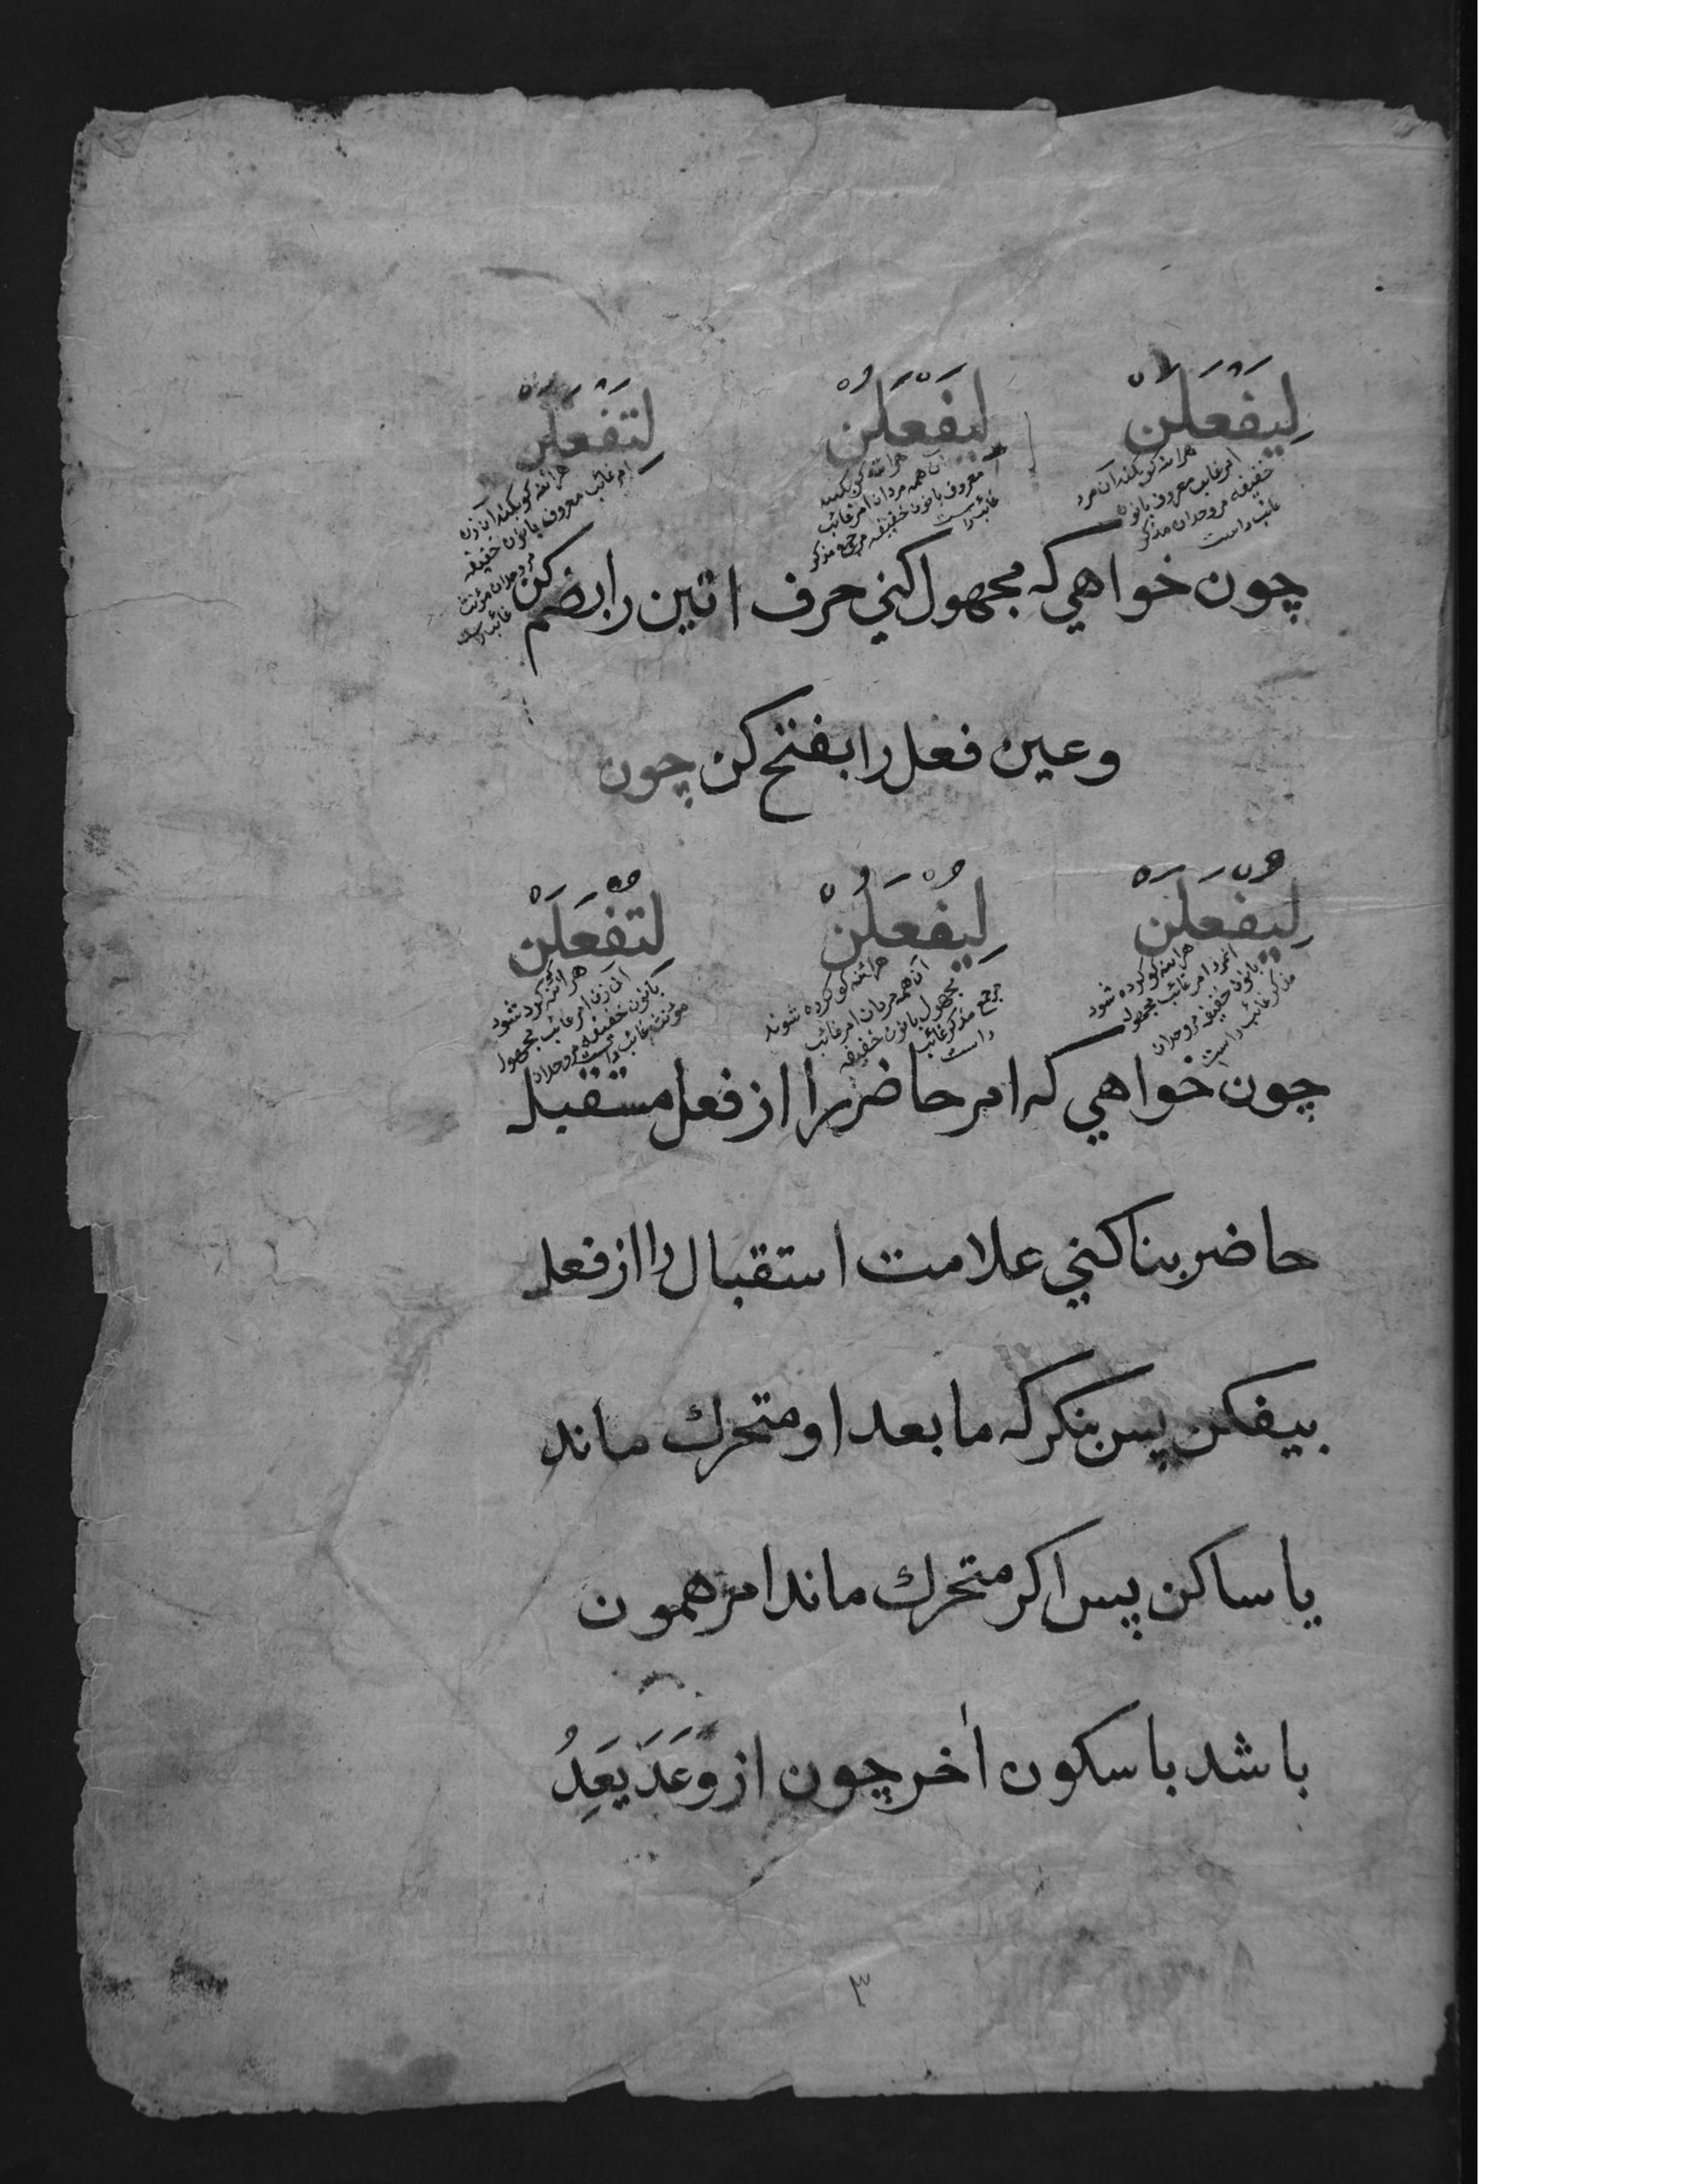 لِيَفْعَلَنْ لِيَفْعَلُنْ لِتَفْعَلَنْ
هرائنه کو بکند آن مرد
امر غائب معروف بانون
خفیفه مر وحدان مذکر
غائب راست
هرائنه کو بکنند
آن همه مردان امر غائب
معروف بانون خفیفه مر جمع مذکر
غائب راست
هرائنه کو بکند آن زن
امر غائب معروف بانون خفیفه
مر وحدان مؤنث
غائب راست
چون خواهي که مجهول کني حرف اتین را بضم کن
وعین فعل را بفتح کن چون
لِيُفْعَلَنْ لِيُفْعَلُنْ لِتُفْعَلَنْ
هرائنه کو کرده شود
انمرد امر غائب مجهول
بانون خفیفه مر وحدان
مذکر غائب راست
هرائنه کو کرده شوند
آن همه مردان امر غائب
مجهول بانون خفیفه
مر جمع مذکر غائب
راست
هرائنه کو کرده شود
آن زن امر غائب مجهول
بانون خفیفه مر وحدان
مؤنث غائب راست
چون خواهي که امر حاضر را از فعل مستقبل
حاضر بنا کني علامت استقبال را از فعل
بیفکن پس بنکر که ما بعد او متحرك ماند
یا ساکن پس اکر متحرك ماند امر همون
باشد با سکون اٰخر چون از وَعَدَ يَعِدُ
٣